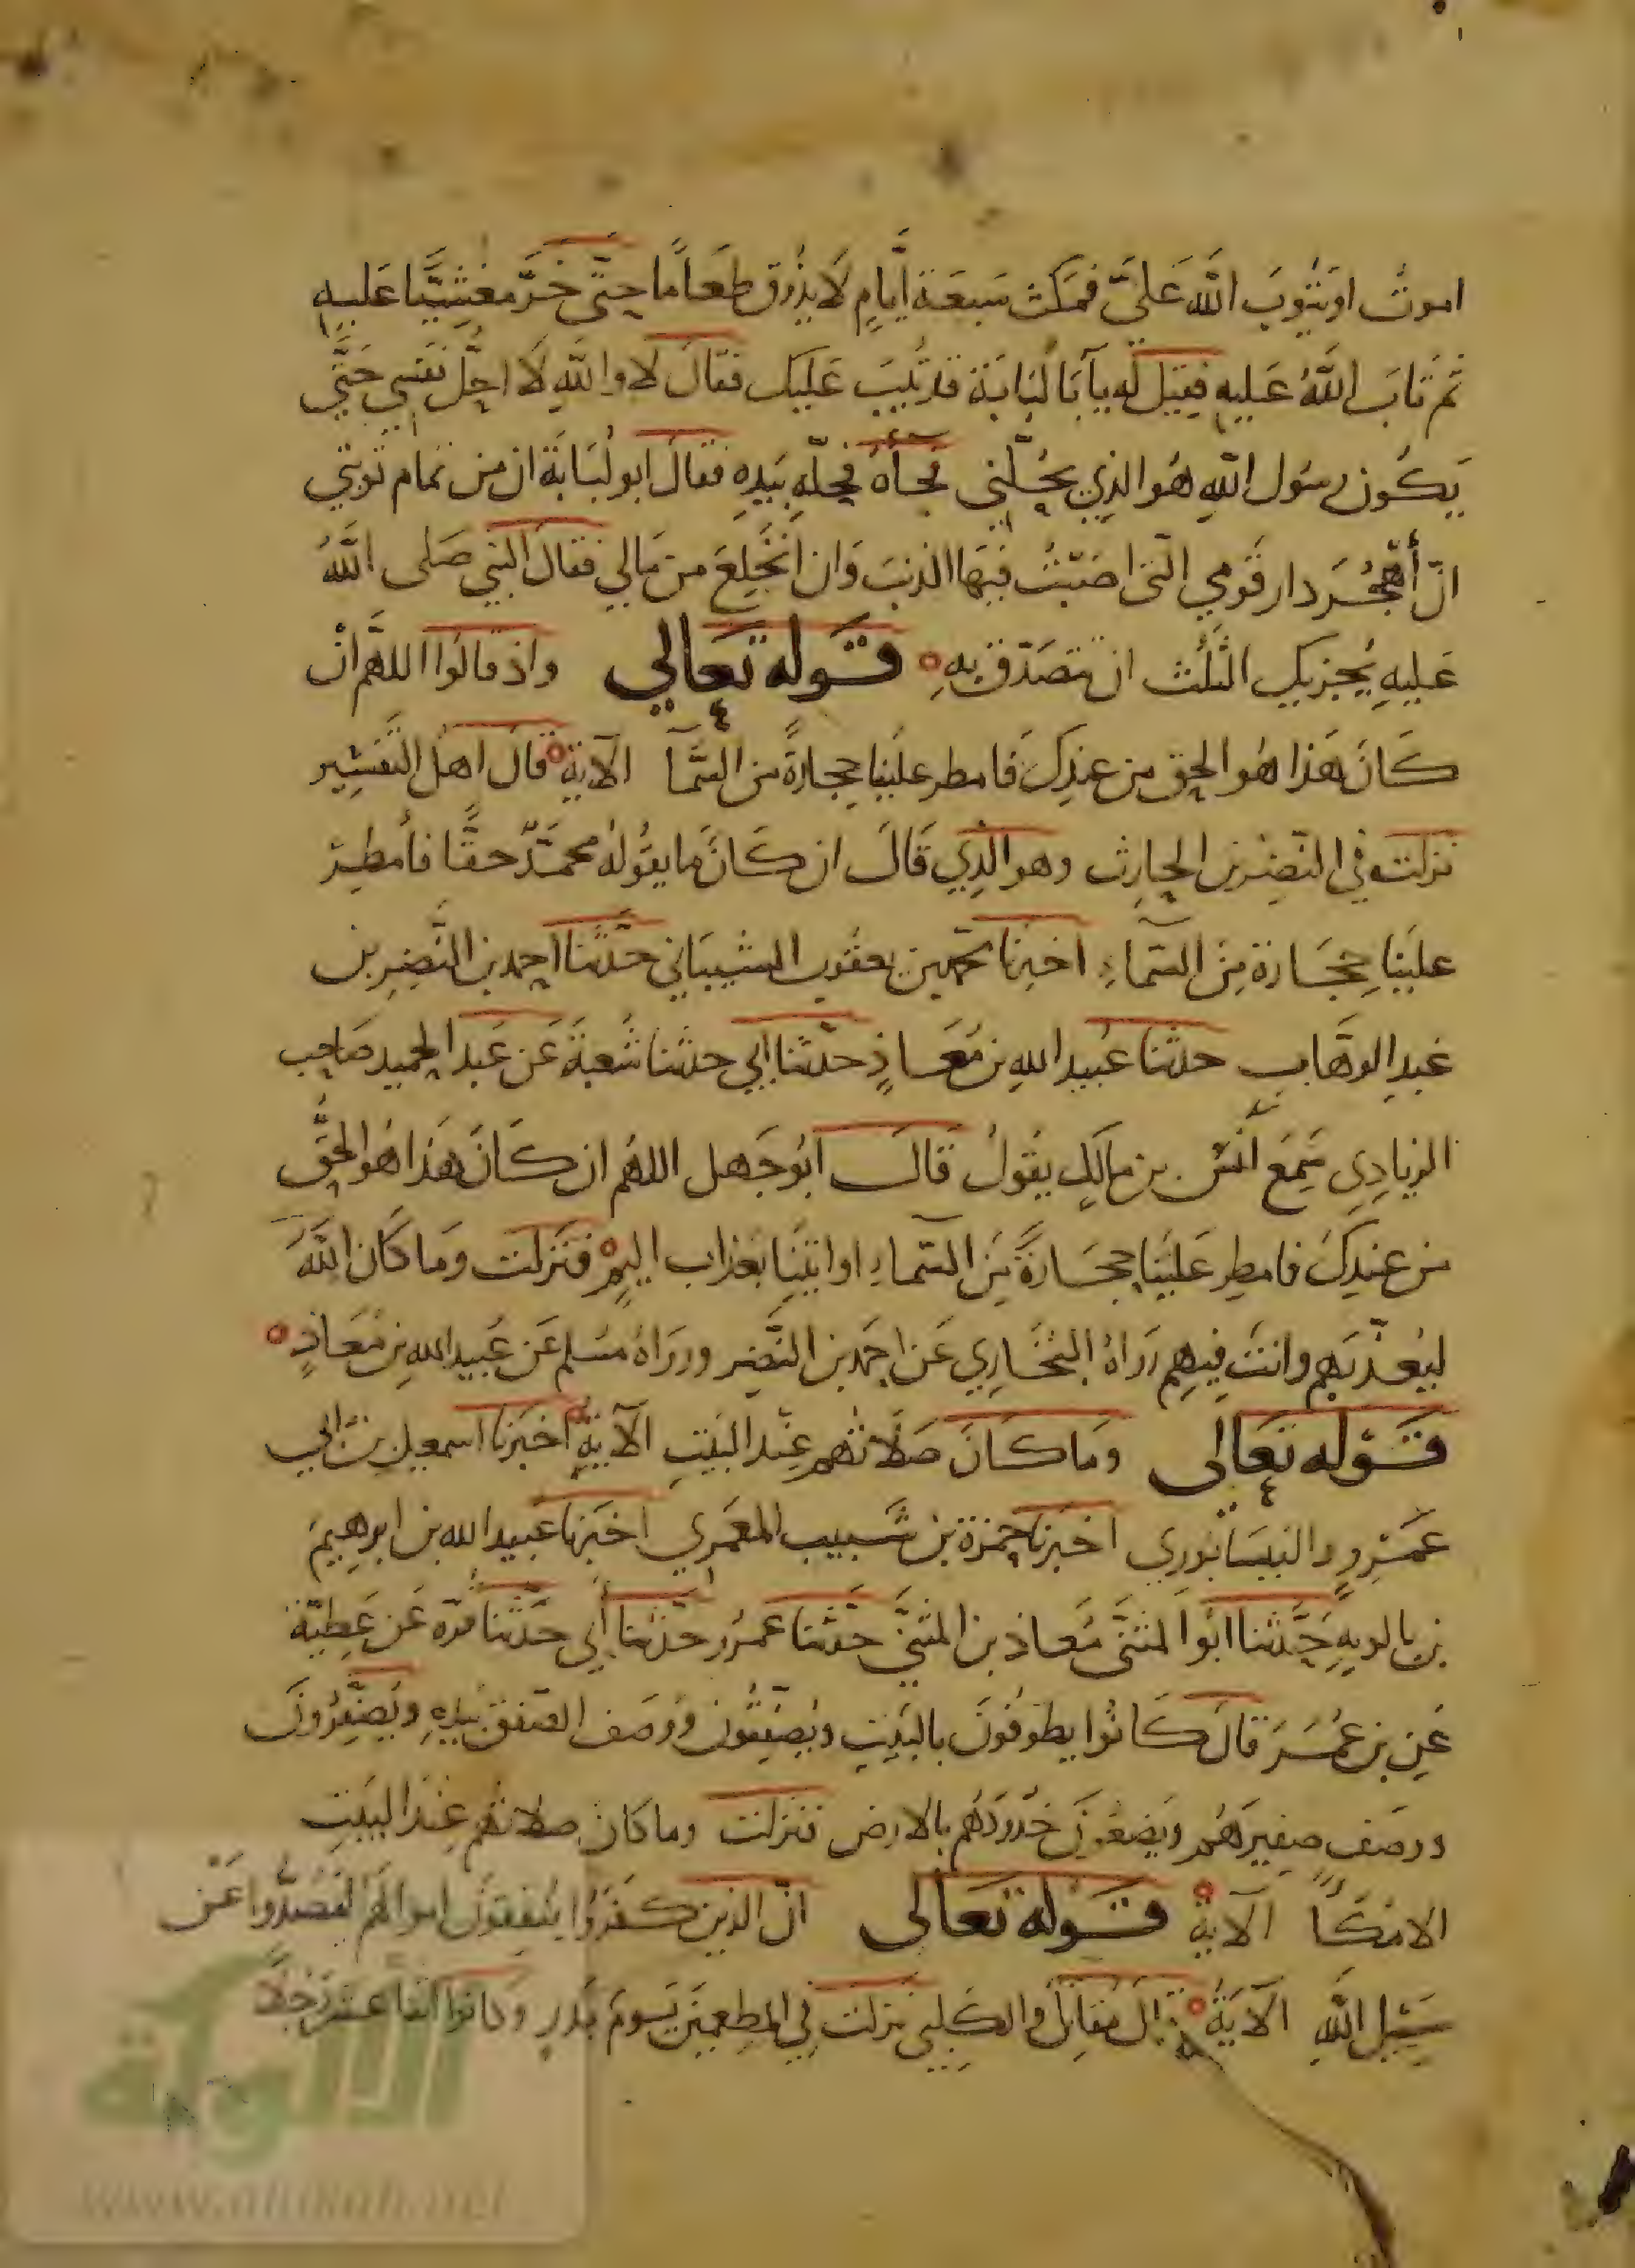 اموتُ او يتوبَ اللّه عَليَّ فمكث سَبعَة أيَّامٍ لَا يذُوق طعَامًا حتّى خَرَّ مغشِيَّا عَليهِ
ثم تَابَ اللَّهُ عَليهِ فقيل له يآ أبَا لُبَابَة قد تيبَ عَليك فقَال لا واللَّهِ لَا احلُّ نَفسِي حَتَّى
يَكُون رسُول اللَّهِ هُو الذي يحُلّني فجآهُ فحلّه بيَدِهِ فقَالَ ابو لُبَابَة ان من تمام توبتي
انّ أهجُرَ دار قَومي التي اصَبْتُ فيهَا الذنبَ وَان انخَلِعَ من مَالي فقَالَ النبي صَلى اللَّهُ
عَليهِ يُجزيك الثلُث ان تتصَدّق بهِ قَوله تعَالي واذ قالوُا اللهَّم انْ
كَانَ هَذا هُو الحق من عندِكَ فامطر علَينا حجارةً من السَّمآ الآية قال اهل التفسِير
نزلت في النضِر بن الحارِث وهو الذي قَال ان كَانَ مَا يقُولهُ محمَّدٌ حقًّا فأمطِر
علَينا حجَارة مِنَ السّمآءِ اخبرنَا محمد بن يعقوب الشيبَاني حدَّثنا احمد بن النَّضِرِ بن
عَبدِ الوهَّاب حدثنا عُبيد اللهِ بن مُعَاذٍ حدّثنا ابي حدثنا شُعبَةَ عَن عَبد الحميد صَاحِب
الزيادِي سَمِعَ أَنَس بن مالكٍ يقولُ قَالَ ابُو جَهل اللهُم ان كَانَ هَذا هُو الحقَّ
من عندِكَ فامطِر عَلَينا حجَارةً مِنَ السّمآءِ اوايتنَا بعَذاب اليمٍ فنَزلت وَما كَان اللَّهَ
ليُعذّبَهُم وانتَ فيهِم رَوَاهُ البُخَاري عَن احمَد بن النَّضِر ورَوَاهُ مسُلم عَن عُبيد اللهِ بن مُعَاذٍ
قَوله تعَالى وَما كَانَ صَلَاتهُم عِنْد البَيتِ الآيةَ اخبَرنا اسمعيل بن ابي
عَمْرٍو النيسَابُوري اخبَرنَا حمزة بن شَبيب المعمَري اخبَرَنا عبيد الله بن ابرهِيم
بن بالويهِ حَدَّثنا ابُو المثنَّى مُعَاذ بن المثنَّى حدّثنا عمرُو حدّثنا أبي حدَّثنا قرّة عَن عَطِيّة
عَنِ بن عُمَرَ قالَ كَانُوا يطوفُونَ بالبَيتِ ويُصفّقُون وَوصَف الصّفقَ بيَدِهِ ويُصَفّرُونَ
ووصَف صفيرَهُم ويَضعُونَ خُدُودَهُم بالارض فنَزلت وما كانَ صلاتهُم عِندَ البَيتِ
الا مكًا الآية قَوله تعَالى انّ الذين كفَرُوا ينُفقوُن اموالهُم ليَصُدُّوا عَنْ
سَبيل اللَّهِ الآيَة قال مُقاتِل والكلبي نزلت في المطعِمينَ يَومَ بَدرٍ وكانوا اثنا عشر رَجُلًا